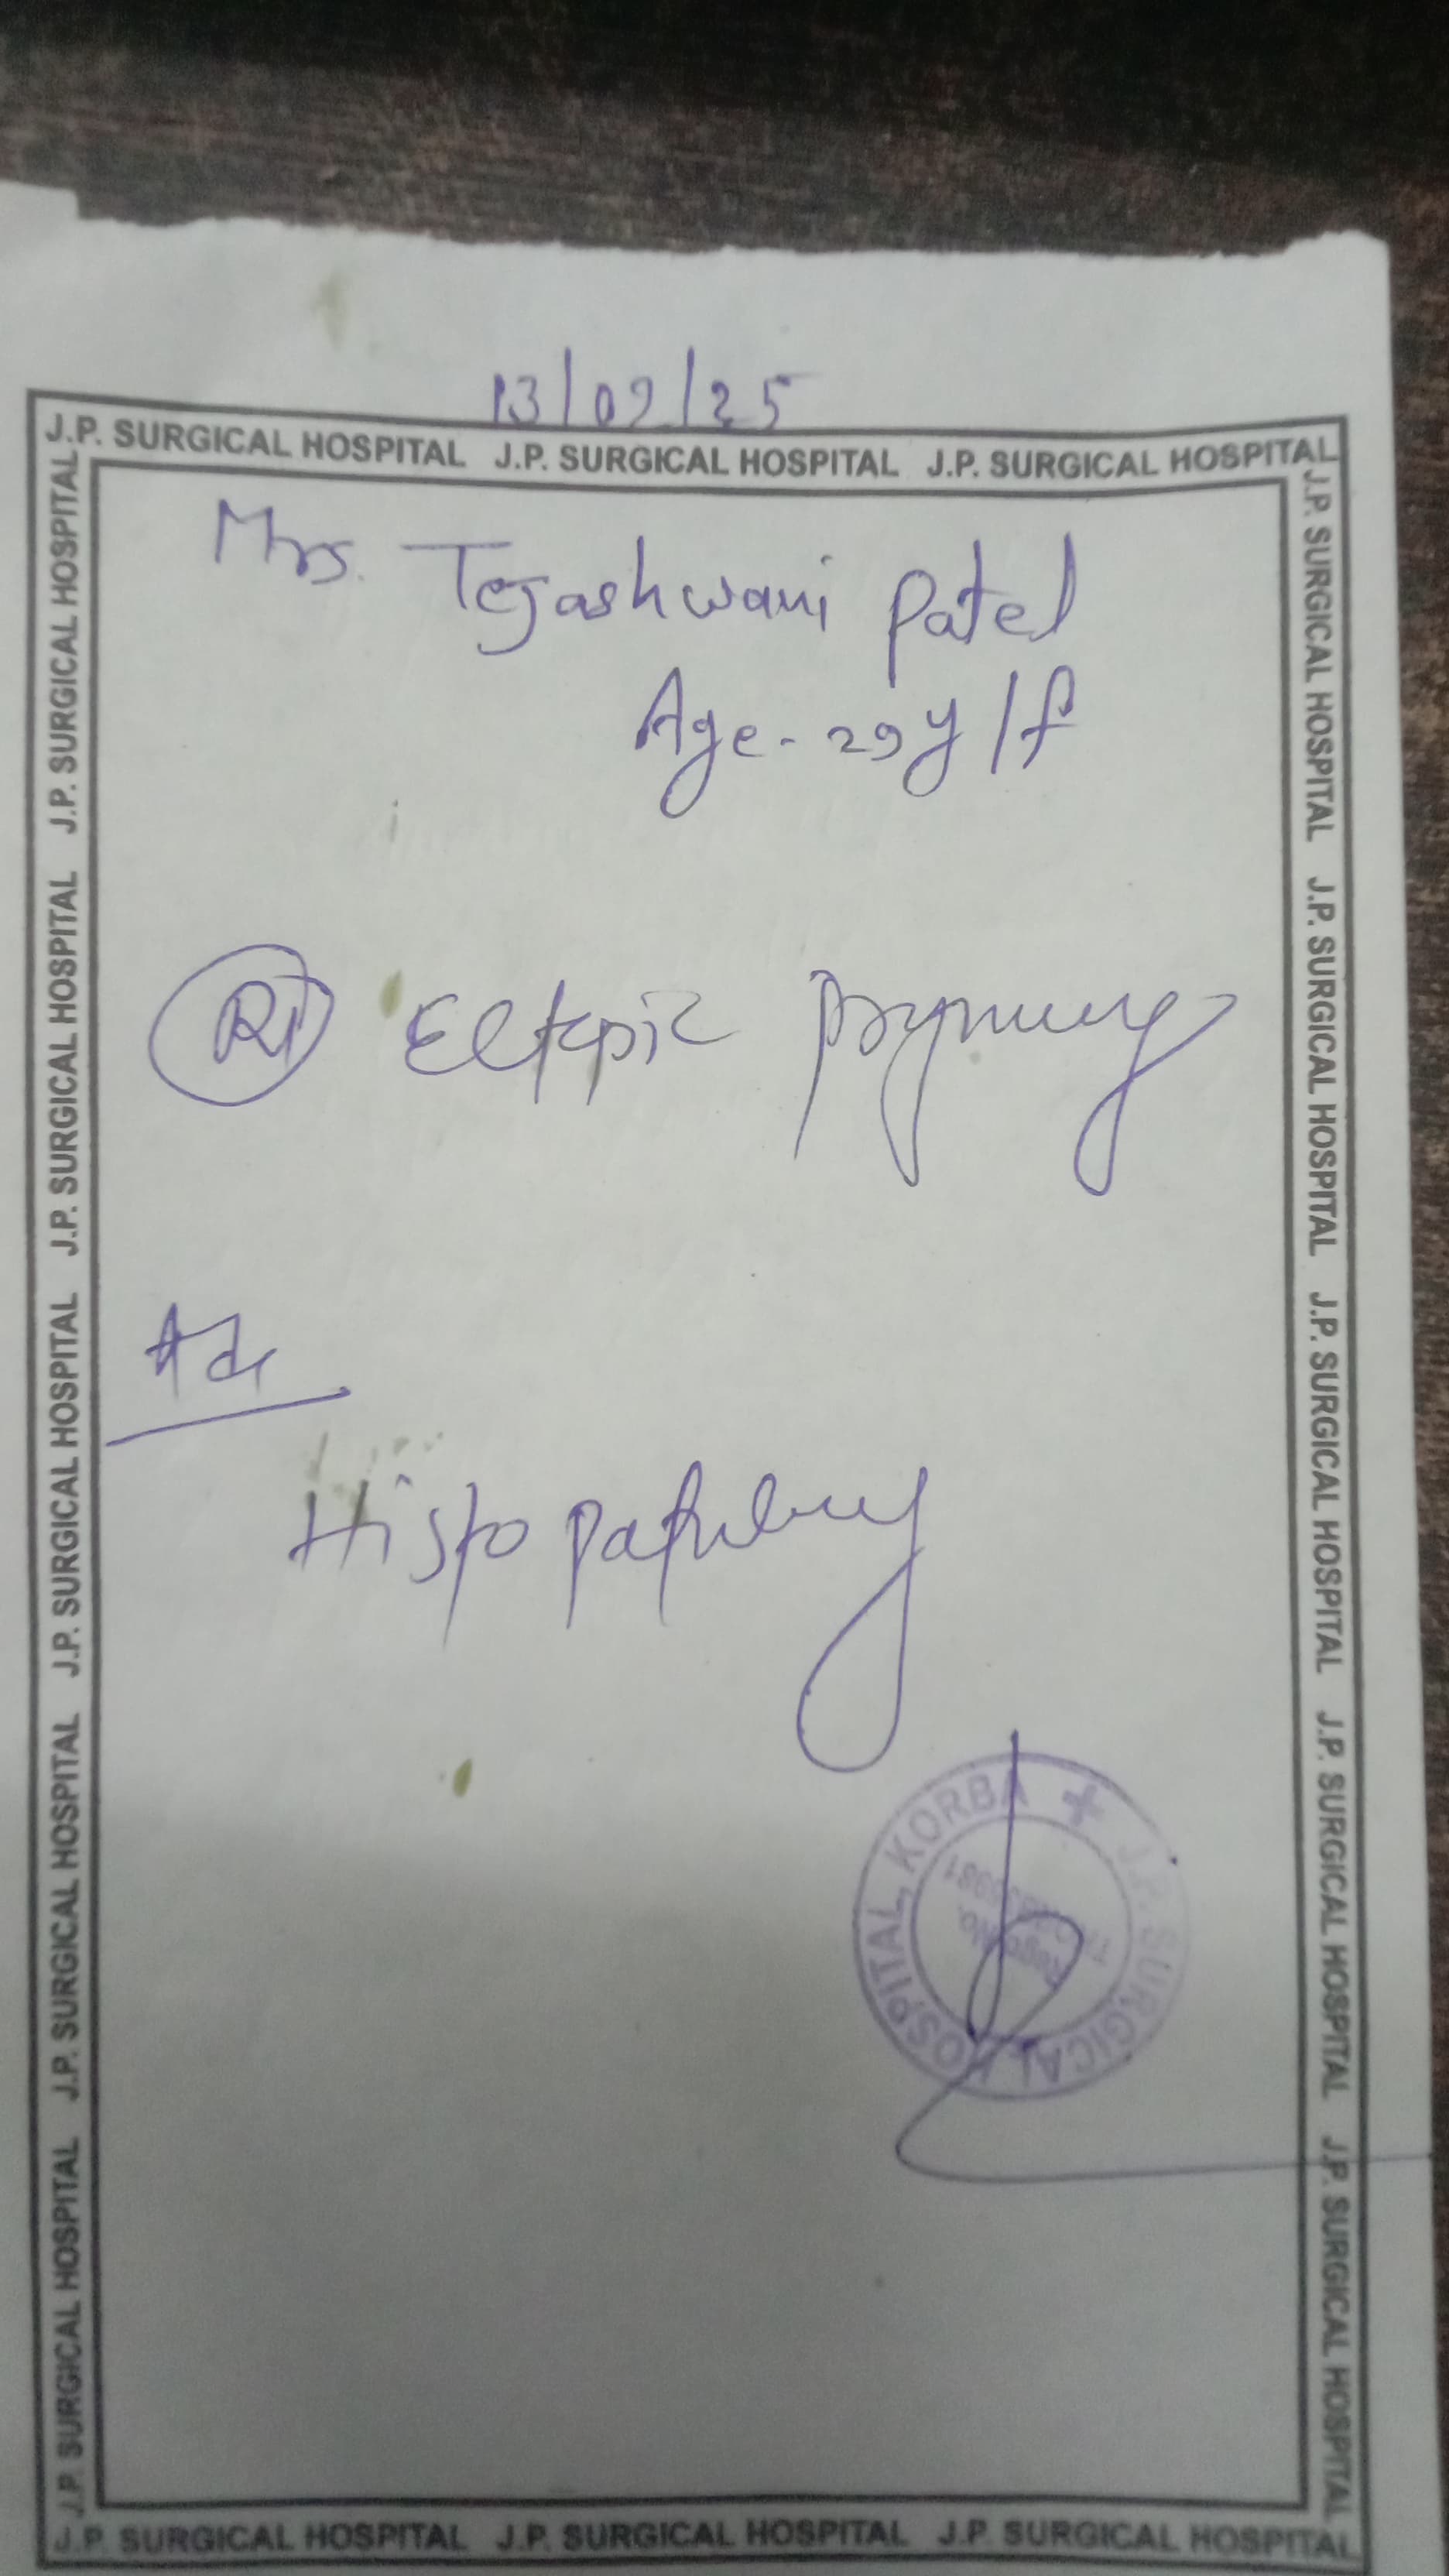 13/02/25
J.P. SURGICAL HOSPITAL J.P. SURGICAL HOSPITAL J.P. SURGICAL HOSPITAL
Mrs. Tejashwani Patel
Age - 29y/f
Rt Ectopic pregnancy
Adv
Histopathology
J.P. SURGICAL HOSPITAL, KORBA
Rego No.
J.P. SURGICAL HOSPITAL J.P. SURGICAL HOSPITAL J.P. SURGICAL HOSPITAL J.P. SURGICAL HOSPITAL J.P. SURGICAL HOSPITAL
J.P. SURGICAL HOSPITAL J.P. SURGICAL HOSPITAL J.P. SURGICAL HOSPITAL J.P. SURGICAL HOSPITAL J.P. SURGICAL HOSPITAL
J.P. SURGICAL HOSPITAL J.P. SURGICAL HOSPITAL J.P. SURGICAL HOSPITAL